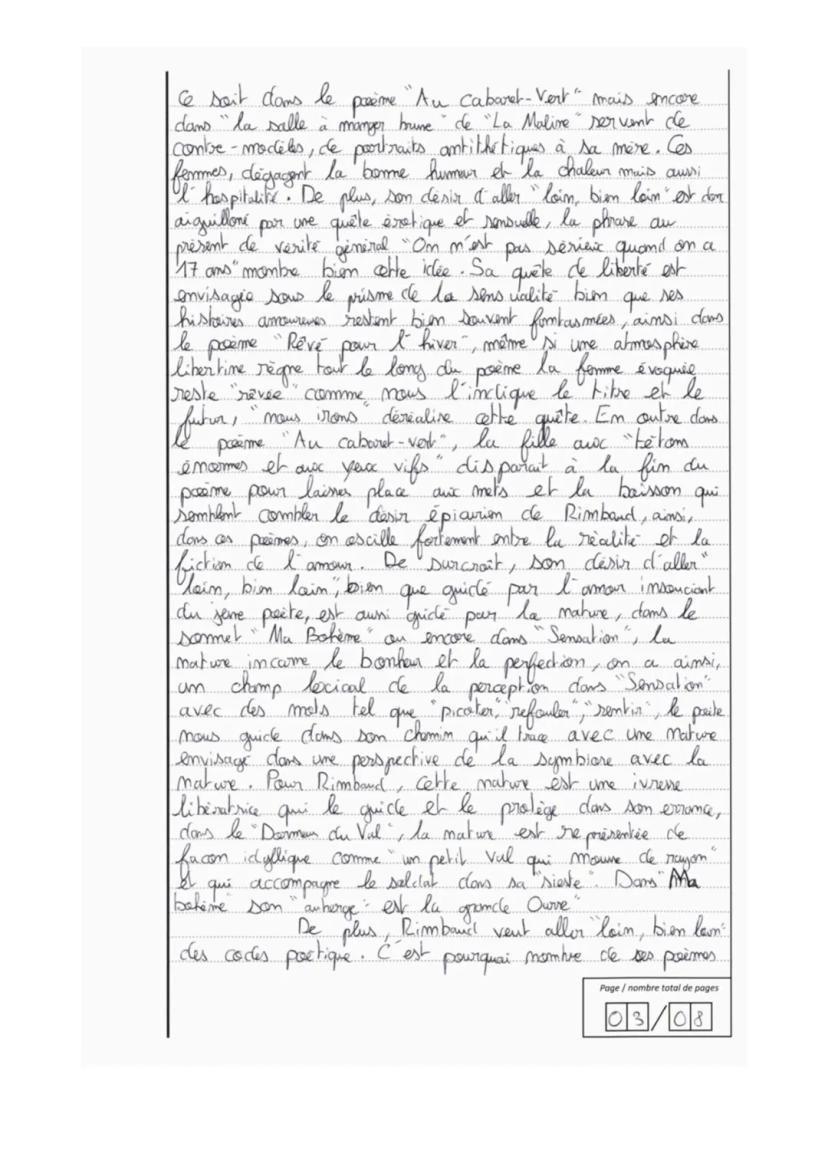 Ce soit dans le poème "Au Cabaret-Vert" mais encore
dans "la salle à manger brune" de "La Maline" servent de
contre-modèles, de portraits antithétiques à sa mère. Ces
femmes, dégagent la bonne humeur et la chaleur mais aussi
l'hospitalité. De plus, son désir d'aller "loin, bien loin" est donc
aiguilloné par une quête érotique et sensuelle, la phrase au
présent de vérité général "On n'est pas sérieux quand on a
17 ans" montre bien cette idée. Sa quête de liberté est
envisagée sous le prisme de la sensualité bien que ses
histoires amoureuses restent bien souvent fantasmées, ainsi dans
le poème "Rêvé pour l'hiver", même si une atmosphère
libertine règne tout le long du poème la femme évoquée
reste "rêvée" comme nous l'indique le titre et le
futur, "nous irons" déréalise cette quête. En outre dans
le poème "Au cabaret-vert", la fille aux "tétons
énormes et aux yeux vifs" disparait à la fin du
poème pour laisser place aux mets et la boisson qui
semblent combler le désir épicurien de Rimbaud, ainsi,
dans ces poèmes, on oscille fortement entre la réalité et la
fiction de l'amour. De surcroît, son désir d'aller "
loin, bien loin", bien que guidé par l'amour insouciant
du jeune poète, est aussi guidé par la nature, dans le
sonnet "Ma Bohème" ou encore dans "Sensation", la
nature incarne le bonheur et la perfection, on a ainsi,
un champ lexical de la perception dans "Sensation"
avec des mots tel que "picoter", "refouler", "sentir", le poète
nous guide dans son chemin qu'il trace avec une nature
envisagé dans une perspective de la symbiose avec la
nature. Pour Rimbaud, cette nature est une ivresse
libératrice qui le guide et le protège dans son errance,
dans le "Dormeur du Val", la nature est représentée de
facon idyllique comme "un petit val qui mousse de rayon"
et qui accompagne le soldat dans sa "sieste". Dans "Ma
bohème" son "auberge" est la grande Ourse"
De plus, Rimbaud veut aller "loin, bien loin"
des codes poétique. C'est pourquoi nombre de ses poèmes
Page / nombre total de pages
03/08